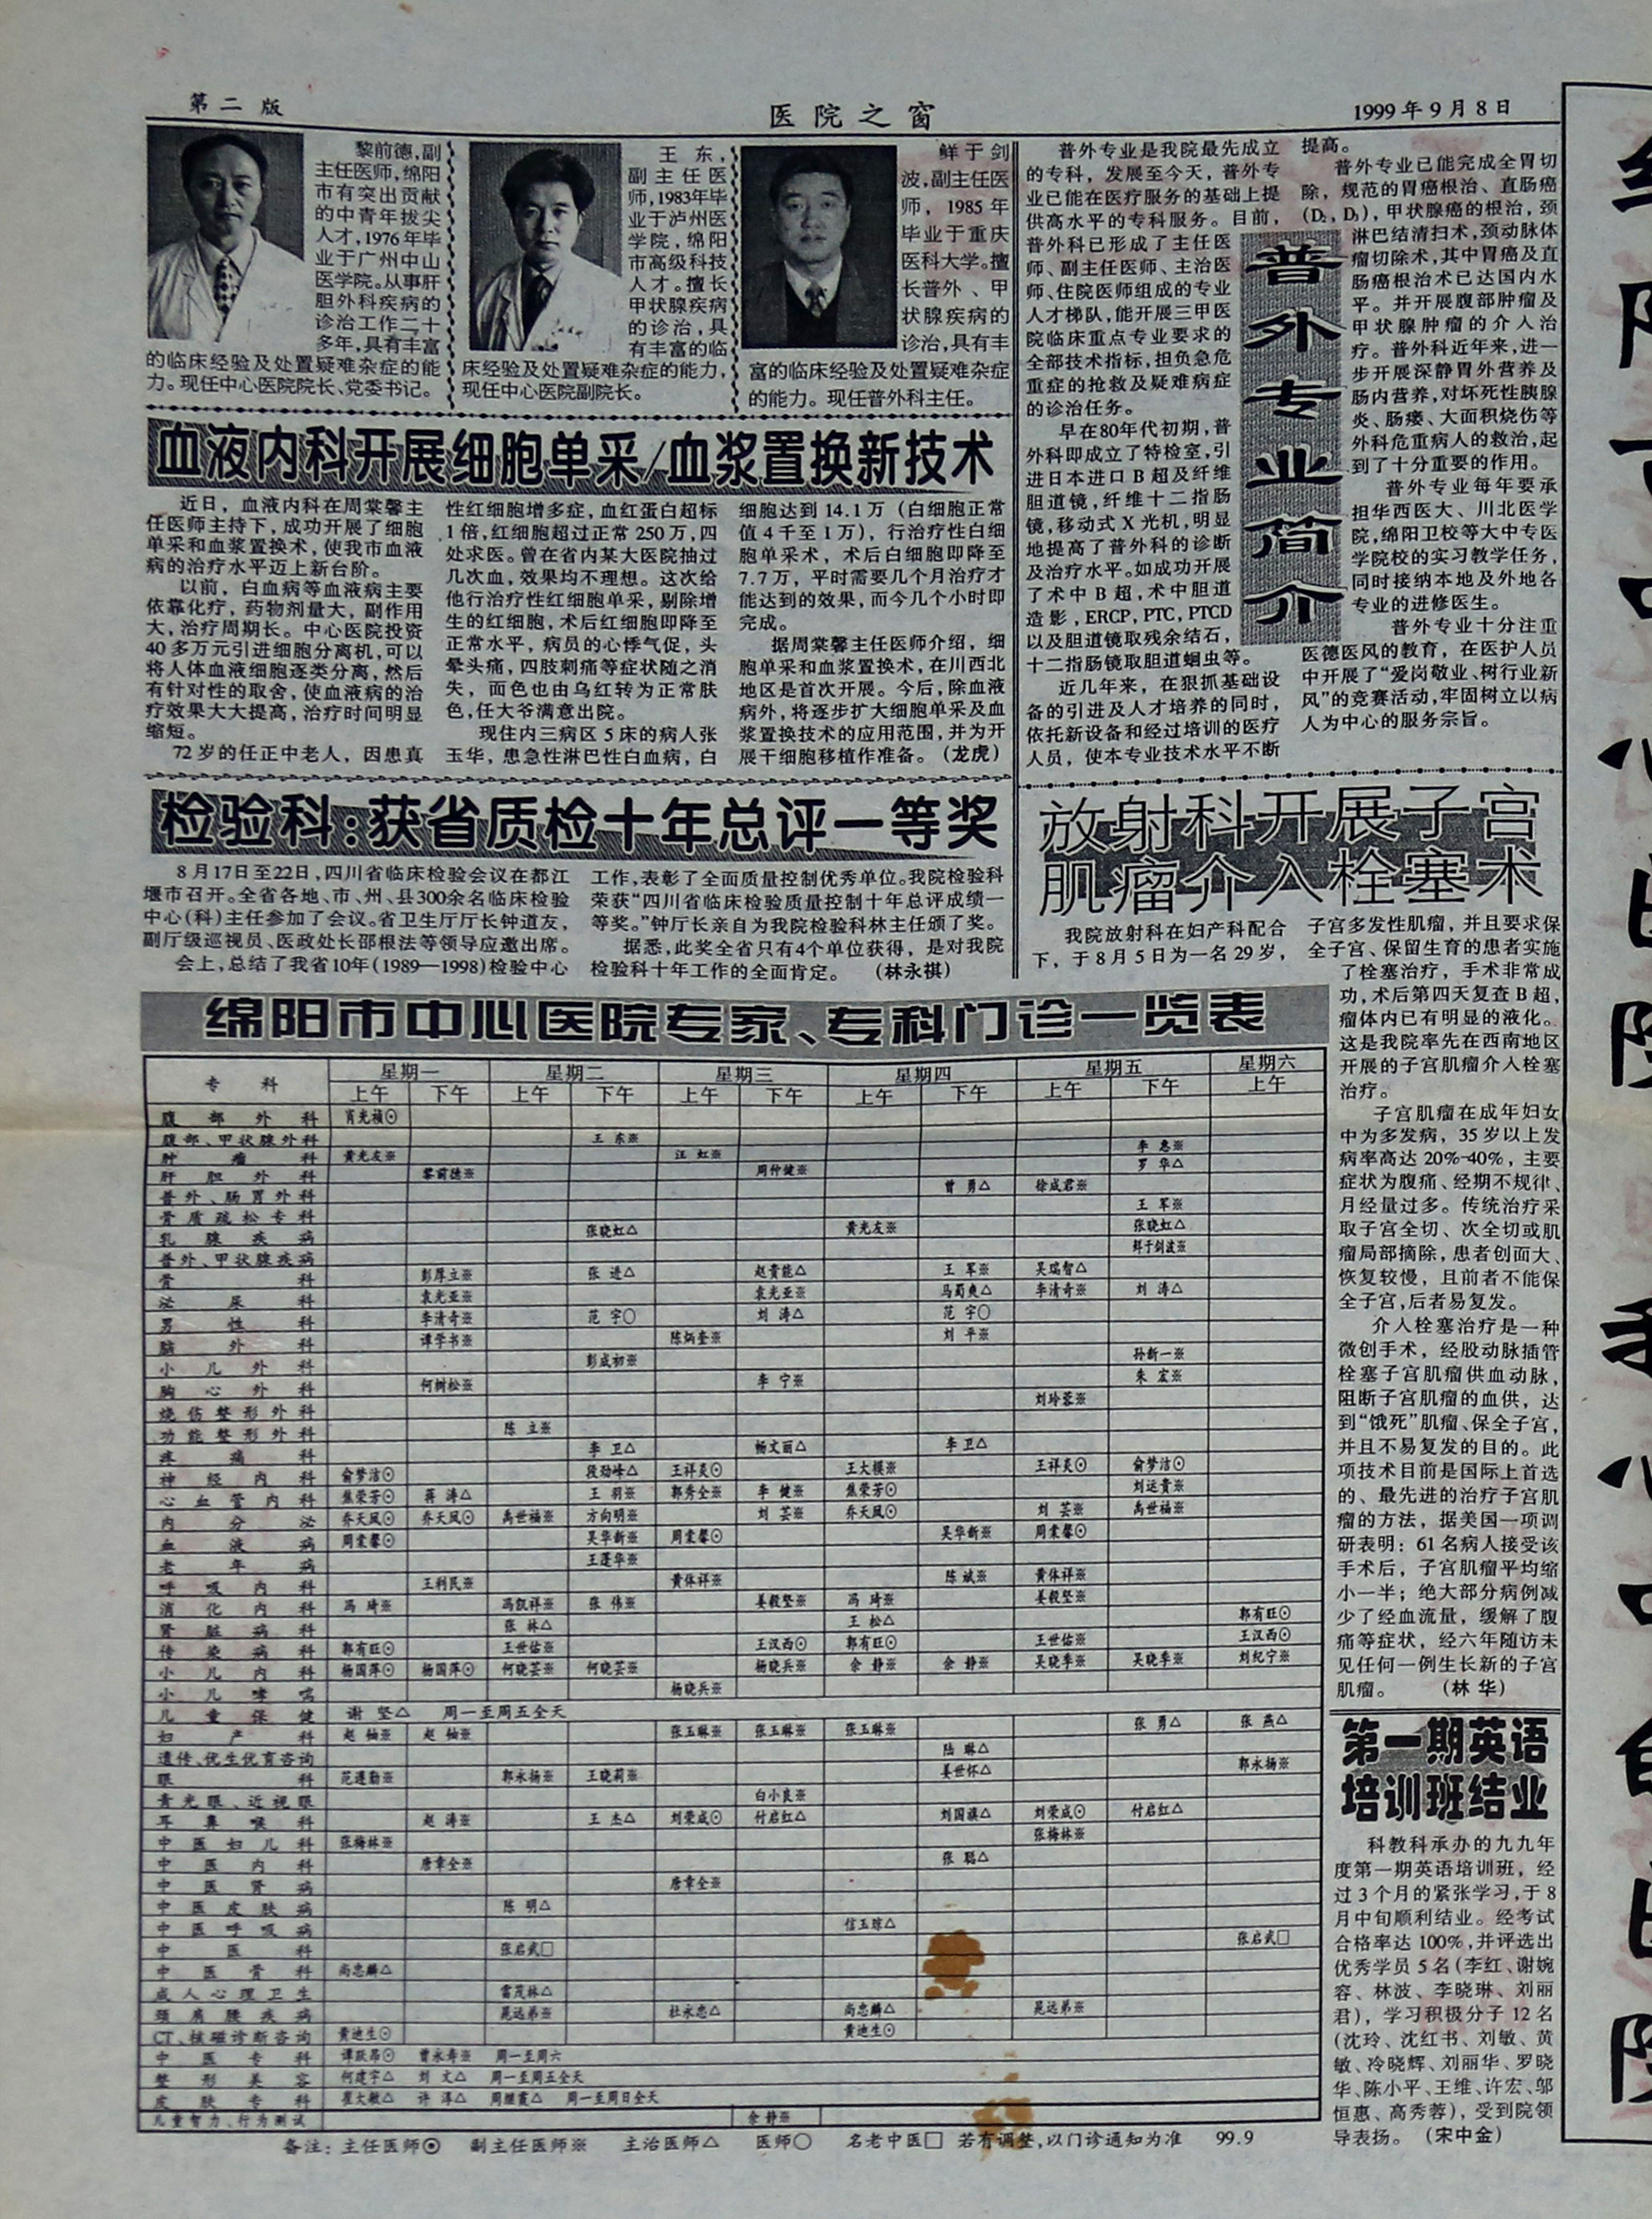 第二版
医院之窗
1999年9月8日
黎前德,副
主任医师,绵阳
市有突出贡献
的中青年拔尖
人才,1976年毕
业于广州中山
医学院。从事肝
胆外科疾病的
诊治工作二十
多年,具有丰富
的临床经验及处置疑难杂症的能
力。现任中心医院院长、党委书记。
王东,
副主任医
师,1983年毕
业于泸州医
学院,绵阳
市高级科技
人才。擅长
甲状腺疾病
的诊治,具
有丰富的临
床经验及处置疑难杂症的能力,
现任中心医院副院长。
鲜于剑
波,副主任医
师,1985年
毕业于重庆
医科大学。擅
长普外、甲
状腺疾病的
诊治,具有丰
富的临床经验及处置疑难杂症
的能力。现任普外科主任。
血液内科开展细胞单采/血浆置换新技术
近日,血液内科在周棠馨主
任医师主持下,成功开展了细胞
单采和血浆置换术,使我市血液
病的治疗水平迈上新台阶。
以前,白血病等血液病主要
依靠化疗,药物剂量大,副作用
大,治疗周期长。中心医院投资
40多万元引进细胞分离机,可以
将人体血液细胞逐类分离,然后
有针对性的取舍,使血液病的治
疗效果大大提高,治疗时间明显
缩短。
72岁的任正中老人,因患真
性红细胞增多症,血红蛋白超标
1倍,红细胞超过正常250万,四
处求医。曾在省内某大医院抽过
几次血,效果均不理想。这次给
他行治疗性红细胞单采,剔除增
生的红细胞,术后红细胞即降至
正常水平,病员的心悸气促,头
晕头痛,四肢刺痛等症状随之消
失,面色也由乌红转为正常肤
色,任大爷满意出院。
现住内三病区5床的病人张
玉华,患急性淋巴性白血病,白
细胞达到14.1万(白细胞正常
值4千至1万),行治疗性白细
胞单采术,术后白细胞即降至
7.7万,平时需要几个月治疗才
能达到的效果,而今几个小时即
完成。
据周棠馨主任医师介绍,细
胞单采和血浆置换术,在川西北
地区是首次开展。今后,除血液
病外,将逐步扩大细胞单采及血
浆置换技术的应用范围,并为开
展干细胞移植作准备。(龙虎)
检验科:获省质检十年总评一等奖
8月17日至22日,四川省临床检验会议在都江
堰市召开。全省各地、市、州、县300余名临床检验
中心(科)主任参加了会议。省卫生厅厅长钟道友,
副厅级巡视员、医政处长邵根法等领导应邀出席。
会上,总结了我省10年(1989—1998)检验中心
工作,表彰了全面质量控制优秀单位。我院检验科
荣获“四川省临床检验质量控制十年总评成绩一
等奖。”钟厅长亲自为我院检验科林主任颁了奖。
据悉,此奖全省只有4个单位获得,是对我院
检验科十年工作的全面肯定。(林永祺)
普外专业简介
普外专业是我院最先成立
的专科,发展至今天,普外专
业已能在医疗服务的基础上提
供高水平的专科服务。目前,
普外科已形成了主任医
师、副主任医师、主治医
师、住院医师组成的专业
人才梯队,能开展三甲医
院临床重点专业要求的
全部技术指标,担负急危
重症的抢救及疑难病症
的诊治任务。
早在80年代初期,普
外科即成立了特检室,引
进日本进口B超及纤维
胆道镜,纤维十二指肠
镜,移动式X光机,明显
地提高了普外科的诊断
及治疗水平。如成功开展
了术中B超,术中胆道
造影,ERCP,PTC,PTCD
以及胆道镜取残余结石,
十二指肠镜取胆道蛔虫等。
近几年来,在狠抓基础设
备的引进及人才培养的同时,
依托新设备和经过培训的医疗
人员,使本专业技术水平不断
提高。
普外专业已能完成全胃切
除,规范的胃癌根治、直肠癌
(D₂,D₃),甲状腺癌的根治,颈
淋巴结清扫术,颈动脉体
瘤切除术,其中胃癌及直
肠癌根治术已达国内水
平。并开展腹部肿瘤及
甲状腺肿瘤的介入治
疗。普外科近年来,进一
步开展深静胃外营养及
肠内营养,对坏死性胰腺
炎、肠瘘、大面积烧伤等
外科危重病人的救治,起
到了十分重要的作用。
普外专业每年要承
担华西医大、川北医学
院,绵阳卫校等大中专医
学院校的实习教学任务,
同时接纳本地及外地各
专业的进修医生。
普外专业十分注重
医德医风的教育,在医护人员
中开展了“爱岗敬业、树行业新
风”的竞赛活动,牢固树立以病
人为中心的服务宗旨。
放射科开展子宫
肌瘤介入栓塞术
我院放射科在妇产科配合
下,于8月5日为一名29岁,
子宫多发性肌瘤,并且要求保
全子宫、保留生育的患者实施
了栓塞治疗,手术非常成
功,术后第四天复查B超,
瘤体内已有明显的液化。
这是我院率先在西南地区
开展的子宫肌瘤介入栓塞
治疗。
子宫肌瘤在成年妇女
中为多发病,35岁以上发
病率高达20%-40%,主要
症状为腹痛、经期不规律、
月经量过多。传统治疗采
取子宫全切、次全切或肌
瘤局部摘除,患者创面大、
恢复较慢,且前者不能保
全子宫,后者易复发。
介入栓塞治疗是一种
微创手术,经股动脉插管
栓塞子宫肌瘤供血动脉,
阻断子宫肌瘤的血供,达
到“饿死”肌瘤、保全子宫,
并且不易复发的目的。此
项技术目前是国际上首选
的、最先进的治疗子宫肌
瘤的方法,据美国一项调
研表明:61名病人接受该
手术后,子宫肌瘤平均缩
小一半;绝大部分病例减
少了经血流量,缓解了腹
痛等症状,经六年随访未
见任何一例生长新的子宫
肌瘤。(林华)
第一期英语
培训班结业
科教科承办的九九年
度第一期英语培训班,经
过3个月的紧张学习,于8
月中旬顺利结业。经考试
合格率达100%,并评选出
优秀学员5名(李红、谢婉
容、林波、李晓琳、刘丽
君),学习积极分子12名
(沈玲、沈红书、刘敏、黄
敏、冷晓辉、刘丽华、罗晓
华、陈小平、王维、许宏、邬
恒惠、高秀蓉),受到院领
导表扬。(宋中金)
绵阳市中心医院专家、专科门诊一览表
专科 星期一 星期二 星期三 星期四 星期五 星期六
上午 下午 上午 下午 上午 下午 上午 下午 上午 下午 上午
腹部外科 肖光祯⊙
腹部、甲状腺外科 王东※
肿瘤科 黄光友※ 汪虹※ 李惠※
肝胆外科 黎前德※ 周仲健※ 罗华△
普外、肠胃外科 曾勇△ 徐成君※
骨质疏松专科 王军※
乳腺疾病 张晓虹△ 黄光友※ 张晓虹△
普外、甲状腺疾病 鲜于剑波※
骨科 彭厚立※ 张进△ 赵贵能△ 王军※ 吴瑞智△
泌尿科 袁光亚※ 袁光亚※ 马蜀爽△ 李清奇※ 刘涛△
男性科 李清奇※ 范宇○ 刘涛△ 范宇○
脑外科 谭学书※ 陈炳奎※ 刘平※
小儿外科 彭成初※ 孙新一※
胸心外科 何树松※ 李宁※ 朱宏※
烧伤整形外科 刘玲蓉※
功能整形外科 陈立※
疼痛科 李卫△ 杨文丽△ 李卫△
神经内科 俞梦洁⊙ 段劲峰△ 王祥炎⊙ 王大模※ 王祥炎⊙ 俞梦洁⊙
心血管内科 焦荣芳⊙ 蒋涛△ 王羽※ 郭秀全※ 李健※ 焦荣芳⊙ 刘远贵※
内分泌 乔天凤⊙ 乔天凤⊙ 禹世福※ 方向明※ 刘芸※ 乔天凤⊙ 刘芸※ 禹世福※
血液病 周棠馨⊙ 吴华新※ 周棠馨⊙ 吴华新※ 周棠馨⊙
老年病 王莲华※
呼吸内科 王利民※ 黄体祥※ 陈斌※ 黄体祥※
消化内科 冯琦※ 冯凯祥※ 张伟※ 姜毅坚※ 冯琦※ 姜毅坚※
肾脏病科 张林△ 王松△ 郭有旺⊙
传染病科 郭有旺⊙ 王世佑※ 王汉西⊙ 郭有旺⊙ 王世佑※ 王汉西⊙
小儿内科 杨国萍⊙ 杨国萍⊙ 何晓芸※ 何晓芸※ 杨晓兵※ 余静※ 余静※ 吴晓季※ 吴晓季※ 刘纪宁※
小儿哮喘 杨晓兵※
儿童保健 谢坚△ 周一至周五全天
妇产科 赵铀※ 赵铀※ 张玉琳※ 张玉琳※ 张玉琳※ 张勇△ 张燕△
遗传、优生优育咨询 陆琳△
眼科 范遵勤※ 郭永扬※ 王晓莉※ 姜世怀△ 郭永扬※
青光眼、近视眼 白小良※
耳鼻喉科 赵涛※ 王杰△ 刘荣成⊙ 付启红△ 刘国旗△ 刘荣成⊙ 付启红△
中医妇儿科 张梅林※ 张梅林※
中医内科 唐章全※ 张聪△
中医肾病 唐章全※
中医皮肤病 陈明△
中医呼吸病 信玉琼△
中医科 张启武□ 张启武□
中医骨科 尚忠麟△
成人心理卫生 雷茂林△
颈肩腰疾病 苑远弟※ 杜永忠△ 尚忠麟△ 苑远弟※
CT、核磁诊断咨询 黄迪生⊙ 黄迪生⊙
中医专科 谭跃昂⊙ 曾永寿※ 周一至周六
整形美容 何建宇△ 刘文△ 周一至周五全天
皮肤专科 翟大敏△ 许淳△ 周继霞△ 周一至周日全天
儿童智力、行为测试 余静※
备注:主任医师⊙ 副主任医师※ 主治医师△ 医师○ 名老中医□ 若有调整,以门诊通知为准 99.9